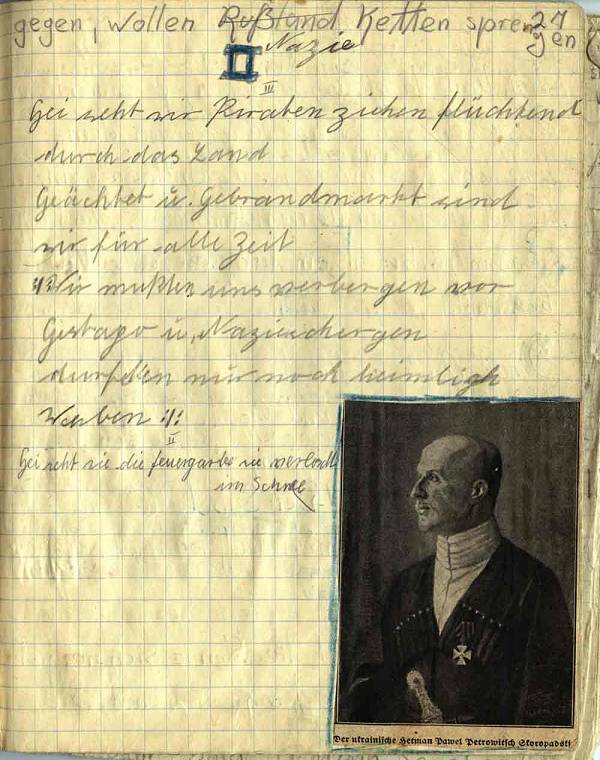 27
gegen, wollen Rußland Ketten spren
gen
Nazie
III
Hei seht wir Piraten ziehen flüchtend
durch das Land
Geächtet u. Gebrandmarkt sind
wir für alle Zeit
Wir mußten uns verbergen vor
Gestapo u. Nazischergen
durften nur noch heimligh
:/:
II
Hei seht sie die feuergarbe sie
im Schnee
Der ukrainische Hetman Pawel Petrowitsch Skoropadski